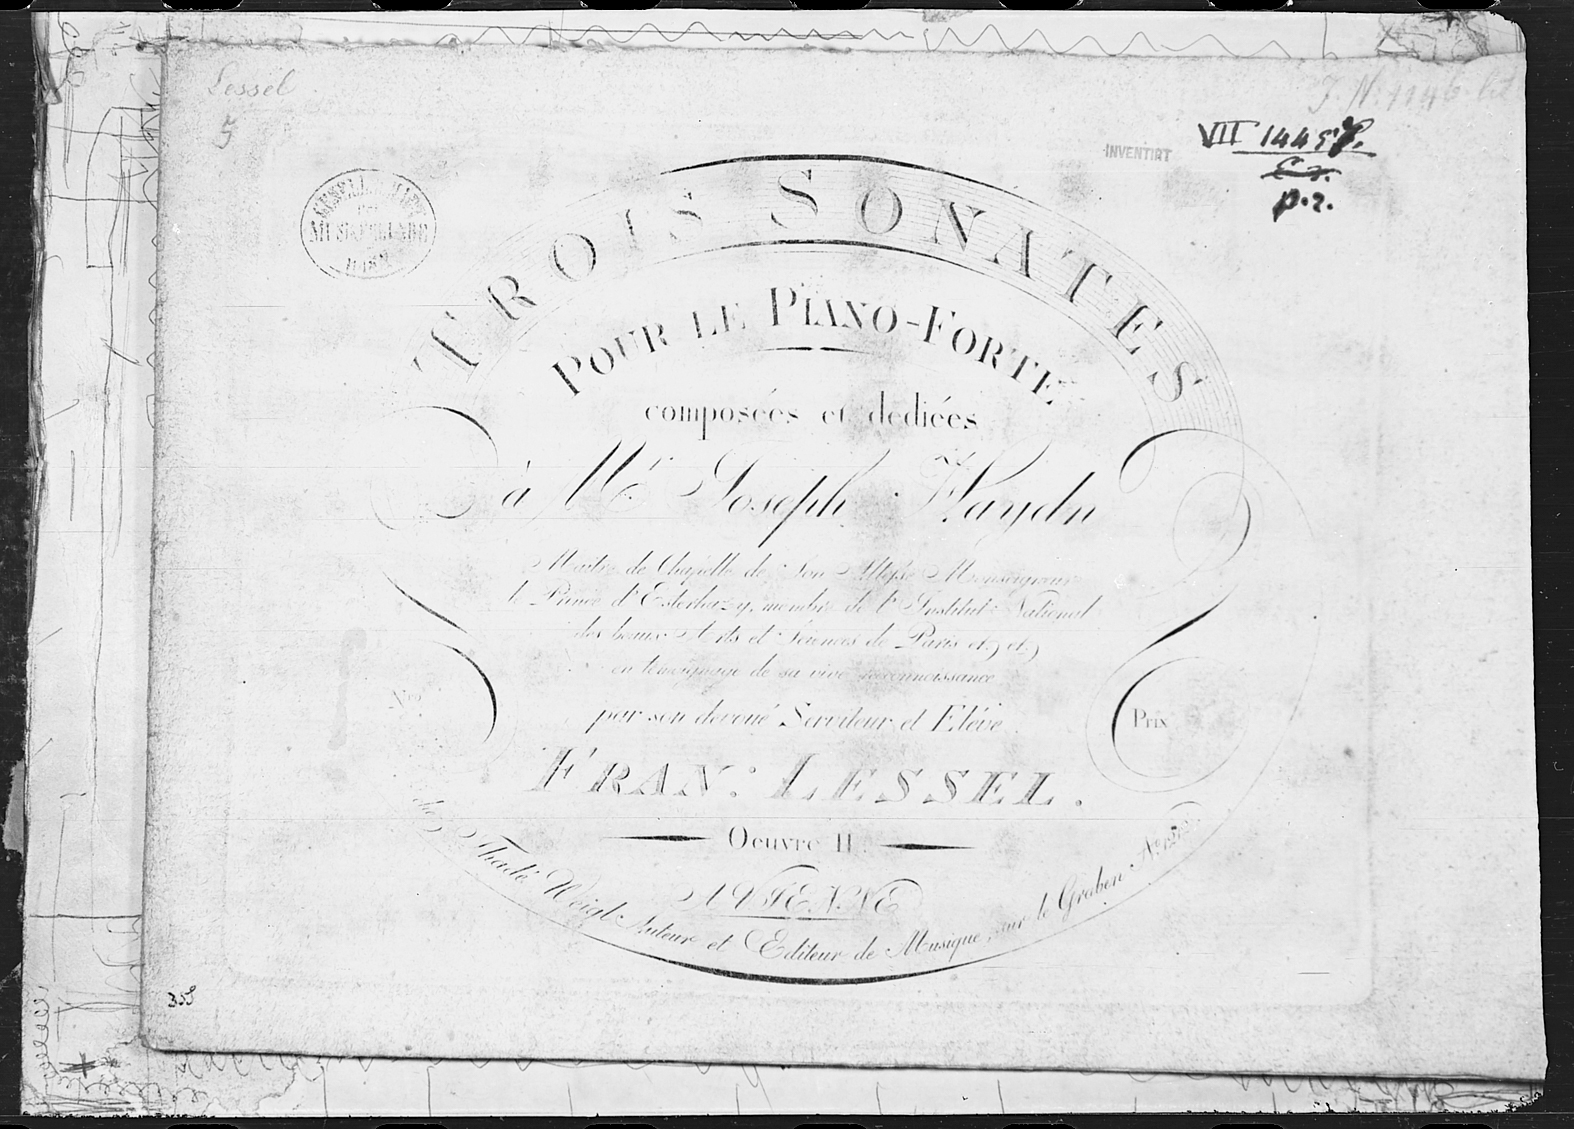 Lessel
5
J. N. 1146
INVENTIRT
VII 1445
p. 2.
GESELLSCHAFT
DER
MUSIKFREUNDE
WIEN
TROIS SONATES
POUR LE PIANO-FORTE
composées et dediées
à Mr. Joseph Haydn
Maitre de Chapelle de Son Altesse Monseigneur
le Prince d'Esterhazy, membre de l'Institut National
des beaux Arts et Sciences de Paris etc etc
en temoignage de sa vive reconnoissance
Nro.
par son devoué Serviteur et Elève
Prix
FRAN: LESSEL.
Oeuvre II.
A VIENNE
chez Thadé Weigl Auteur et Editeur de Musique, sur le Graben No. 1212
358